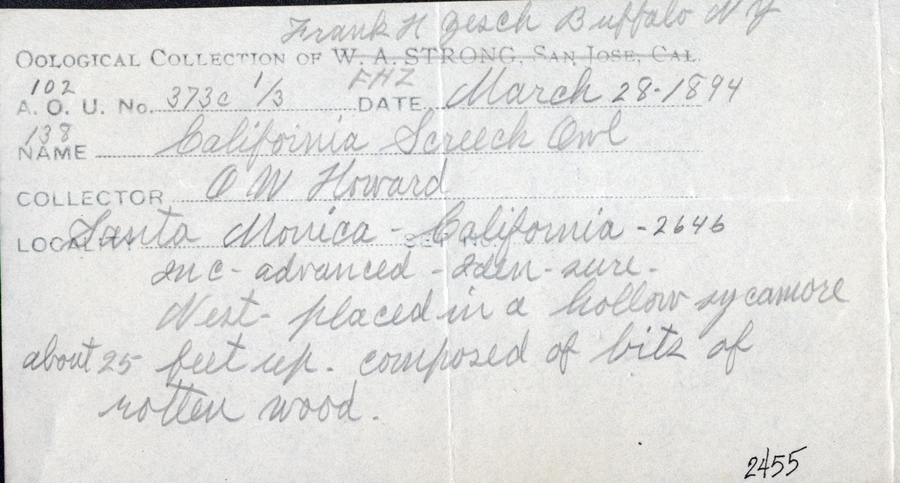 Frank H Zesch Buffalo NY
OOLOGICAL COLLECTION OF W. A. STRONG, SAN JOSE, CAL.
102 FHZ
A. O. U. No. 373c 1/3 DATE March 28-1894
138
NAME California Screech Owl
COLLECTOR O W Howard
LOCALITY Santa Monica - California - 2646
Inc - advanced - Iden - sure -
Nest - placed in a hollow sycamore
about 25 feet up. composed of bits of
rotten wood.
2455